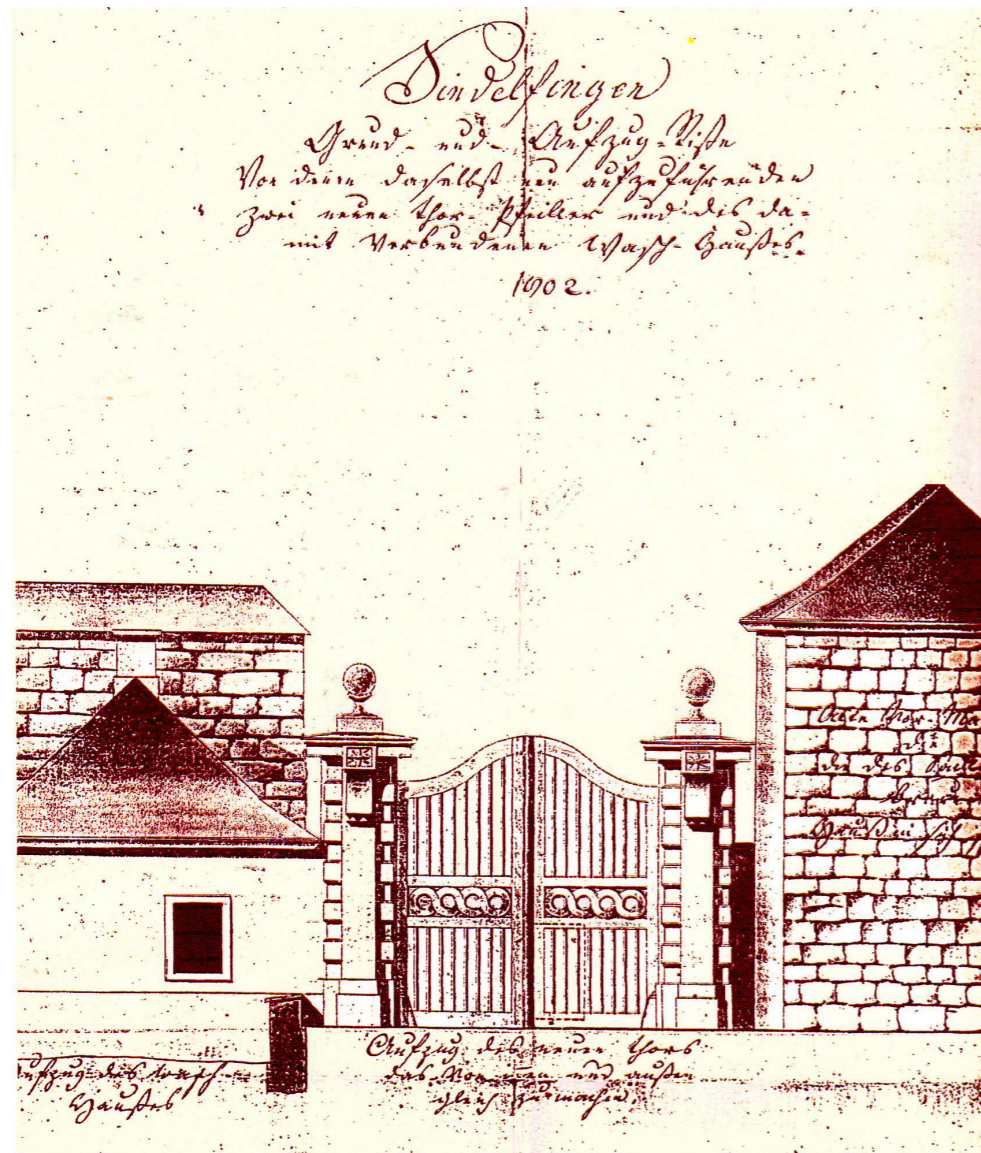 Sindelfingen
Grund- und Aufzug-Riße
Von denen daselbst neu aufzuführenden
zwei neuen Thor-Pfeiller und des da-
mit Verbundenen Wasch-Haußes
1802.
Alte Thor-Ma
die des
Hauß
Aufzug des neuen Thors
das von innen und außen
gleich zu machen.
Aufzug des Wasch-
Haußes